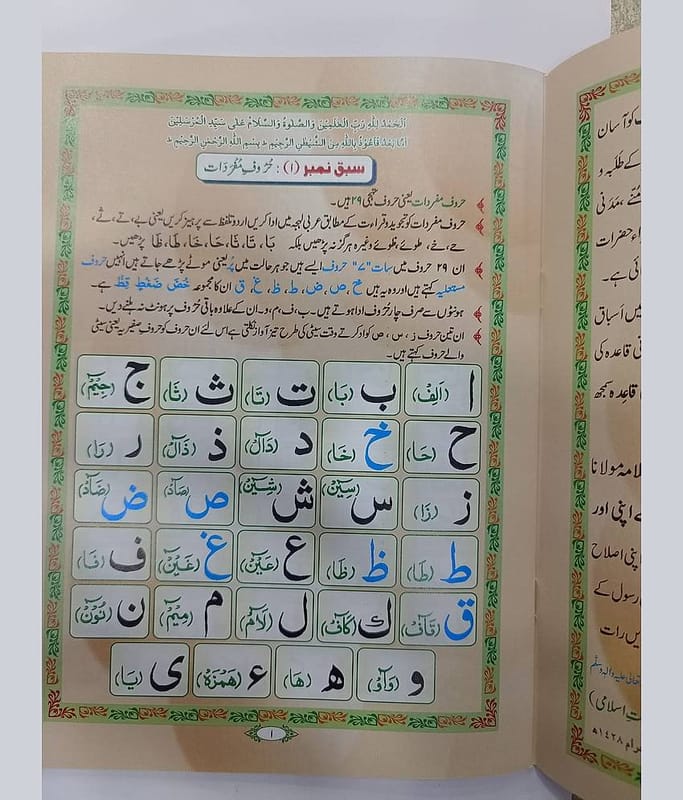 اَلْحَمْدُ لِلّٰهِ رَبِّ الْعٰلَمِیْنَ وَالصَّلٰوۃُ وَالسَّلَامُ عَلٰی سَیِّدِ الْمُرْسَلِیْنَ
اَمَّا بَعْدُ فَاَعُوْذُ بِاللّٰهِ مِنَ الشَّیْطٰنِ الرَّجِیْمِ ؕ بِسْمِ اللّٰهِ الرَّحْمٰنِ الرَّحِیْمِ ؕ
سبق نمبر (۱) : حُرُوفِ مُفْرَدَات
حروف مفردات یعنی حروف تہجی ۲۹ ہیں۔
حروف مفردات کو تجوید و قراءت کے مطابق عربی لہجہ میں ادا کریں اردو تلفظ سے پرہیز کریں یعنی بے، تے، ثے،
حے، خے، طوئے، ظوئے وغیرہ ہرگز نہ پڑھیں بلکہ بَا، تَا، ثَا، حَا، خَا، طَا، ظَا پڑھیں۔
ان ۲۹ حروف میں سات "۷" حروف ایسے ہیں جو ہر حالت میں پُر یعنی موٹے پڑھے جاتے ہیں انہیں حروف
مستعلیہ کہتے ہیں اور وہ یہ ہیں خ، ص، ض، ط، ظ، غ، ق ان کا مجموعہ خُصَّ ضَغْطٍ قِظْ ہے۔
ہونٹوں سے صرف چار حُروف ادا ہوتے ہیں۔ ب، ف، م، و۔ ان کے علاوہ باقی حُروف پر ہونٹ نہ ہلنے دیں۔
ان تین حروف ز، س، ص کو ادا کرتے وقت سیٹی کی طرح تیز آواز نکلتی ہے اس لئے ان حروف کو حروفِ صفیریہ یعنی سیٹی
والے حروف کہتے ہیں۔
ا (اَلِفْ) ب (بَا) ت (تَا) ث (ثَا) ج (جِیْمْ)
ح (حَا) خ (خَا) د (دَالْ) ذ (ذَالْ) ر (رَا)
ز (زَا) س (سِیْنْ) ش (شِیْنْ) ص (صَادْ) ض (ضَادْ)
ط (طَا) ظ (ظَا) ع (عَیْنْ) غ (غَیْنْ) ف (فَا)
ق (قَافْ) ك (کَافْ) ل (لَامْ) م (مِیْمْ) ن (نُوْنْ)
و (وَاوْ) ھ (ھَا) ء (ھَمْزَہْ) ی (یَا)
۱
کو آسان
کے طلبہ و
مَدَنی
حضرات
ئی ہے۔
میں اَسباق
نی قاعدہ کی
قاعدہ سمجھ
مہ مولانا
ے اپنی اور
پنی اصلاح
رسول کے
یں رات
تِ اسلامی)
رام ۱۴۲۸ھ